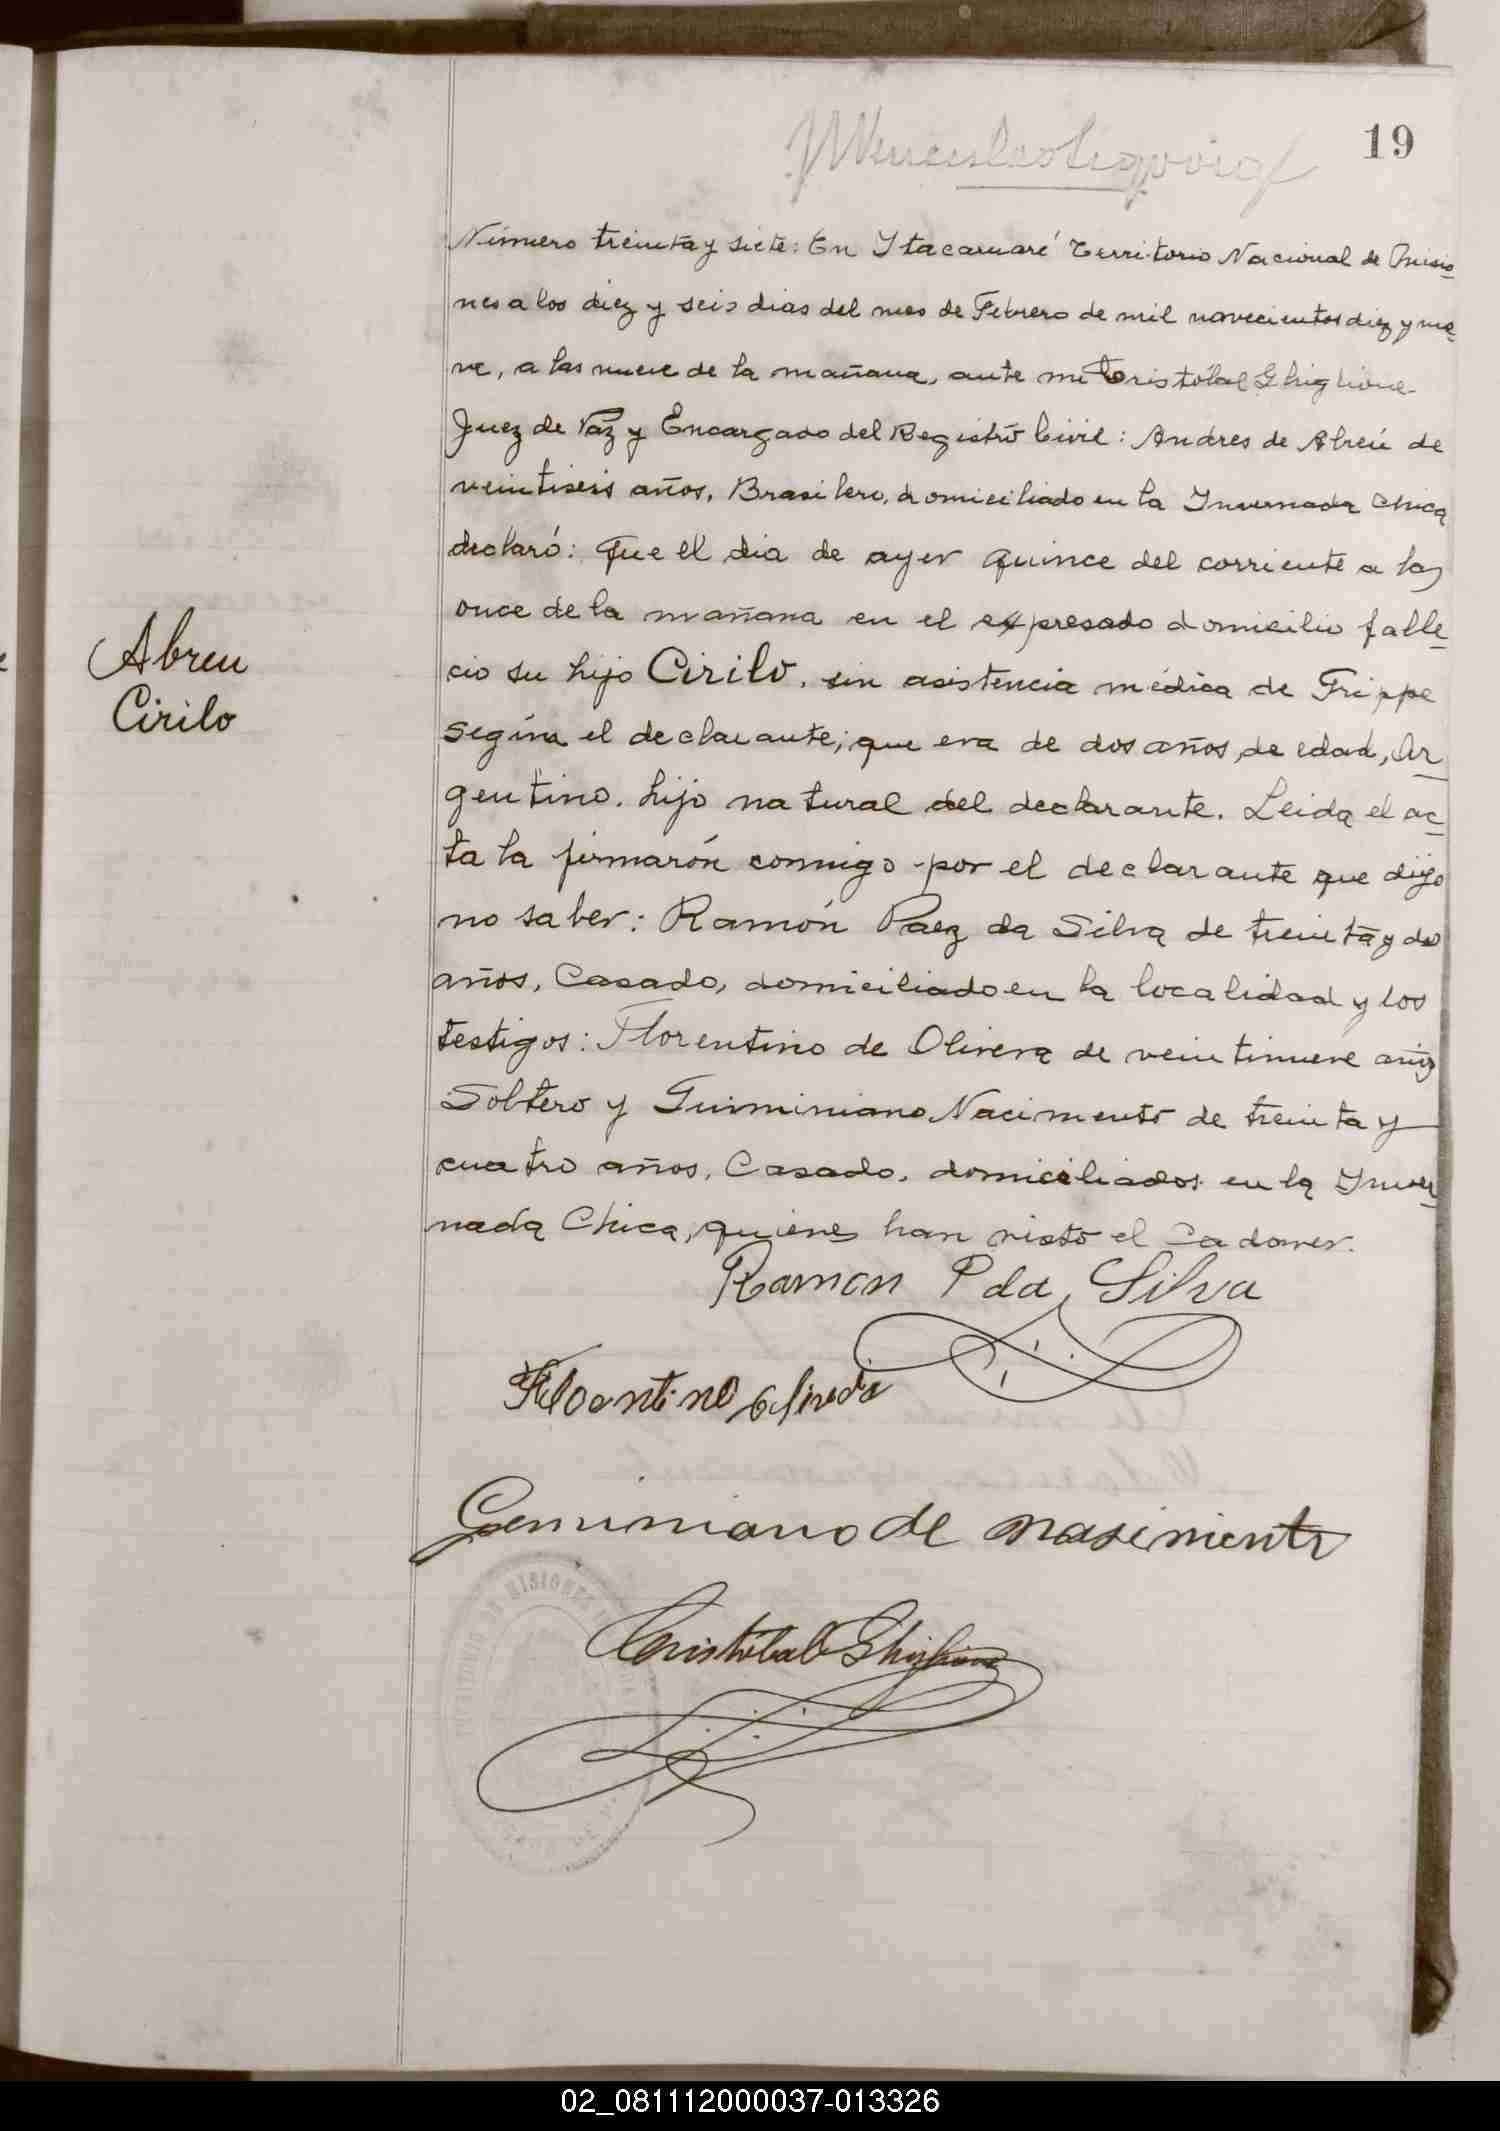 19
Número treinta y siete: En Ytacaruaré Territorio Nacional de Misio-
nes a los diez y seis dias del mes de Febrero de mil novecientos diez y nue-
ve, a las nueve de la mañana, ante mi Cristobal Ghiglione
Juez de Paz y Encargado del Registro Civil: Andres de Abreú de
veintiseis años, Brasilero, domiciliado en la Invernada Chica
declaró: Que el dia de ayer quince del corriente a las
once de la mañana en el expresado domicilio falle-
cio su hijo Cirilo, sin asistencia médica de Grippe
según el declarante; que era de dos años, de edad, Ar-
gentino. hijo natural del declarante. Leida el ac-
ta la firmarón conmigo por el declarante que dijo
no saber: Ramón Paez da Silva de treinta y dos
años, Casado, domiciliado en la localidad y los
testigos: Florentino de Olivera de veintinueve años
Soltero y Guiminiano Nacimento de treinta y
cuatro años, Casado, domiciliados en la Inver-
nada Chica, quienes han visto el cadaver.
Abreu
Cirilo
Ramon P da Silva
Geminiano de nasimento
Cristóbal Ghiglione
TERRITORIO DE MISIONES
02_081112000037-013326